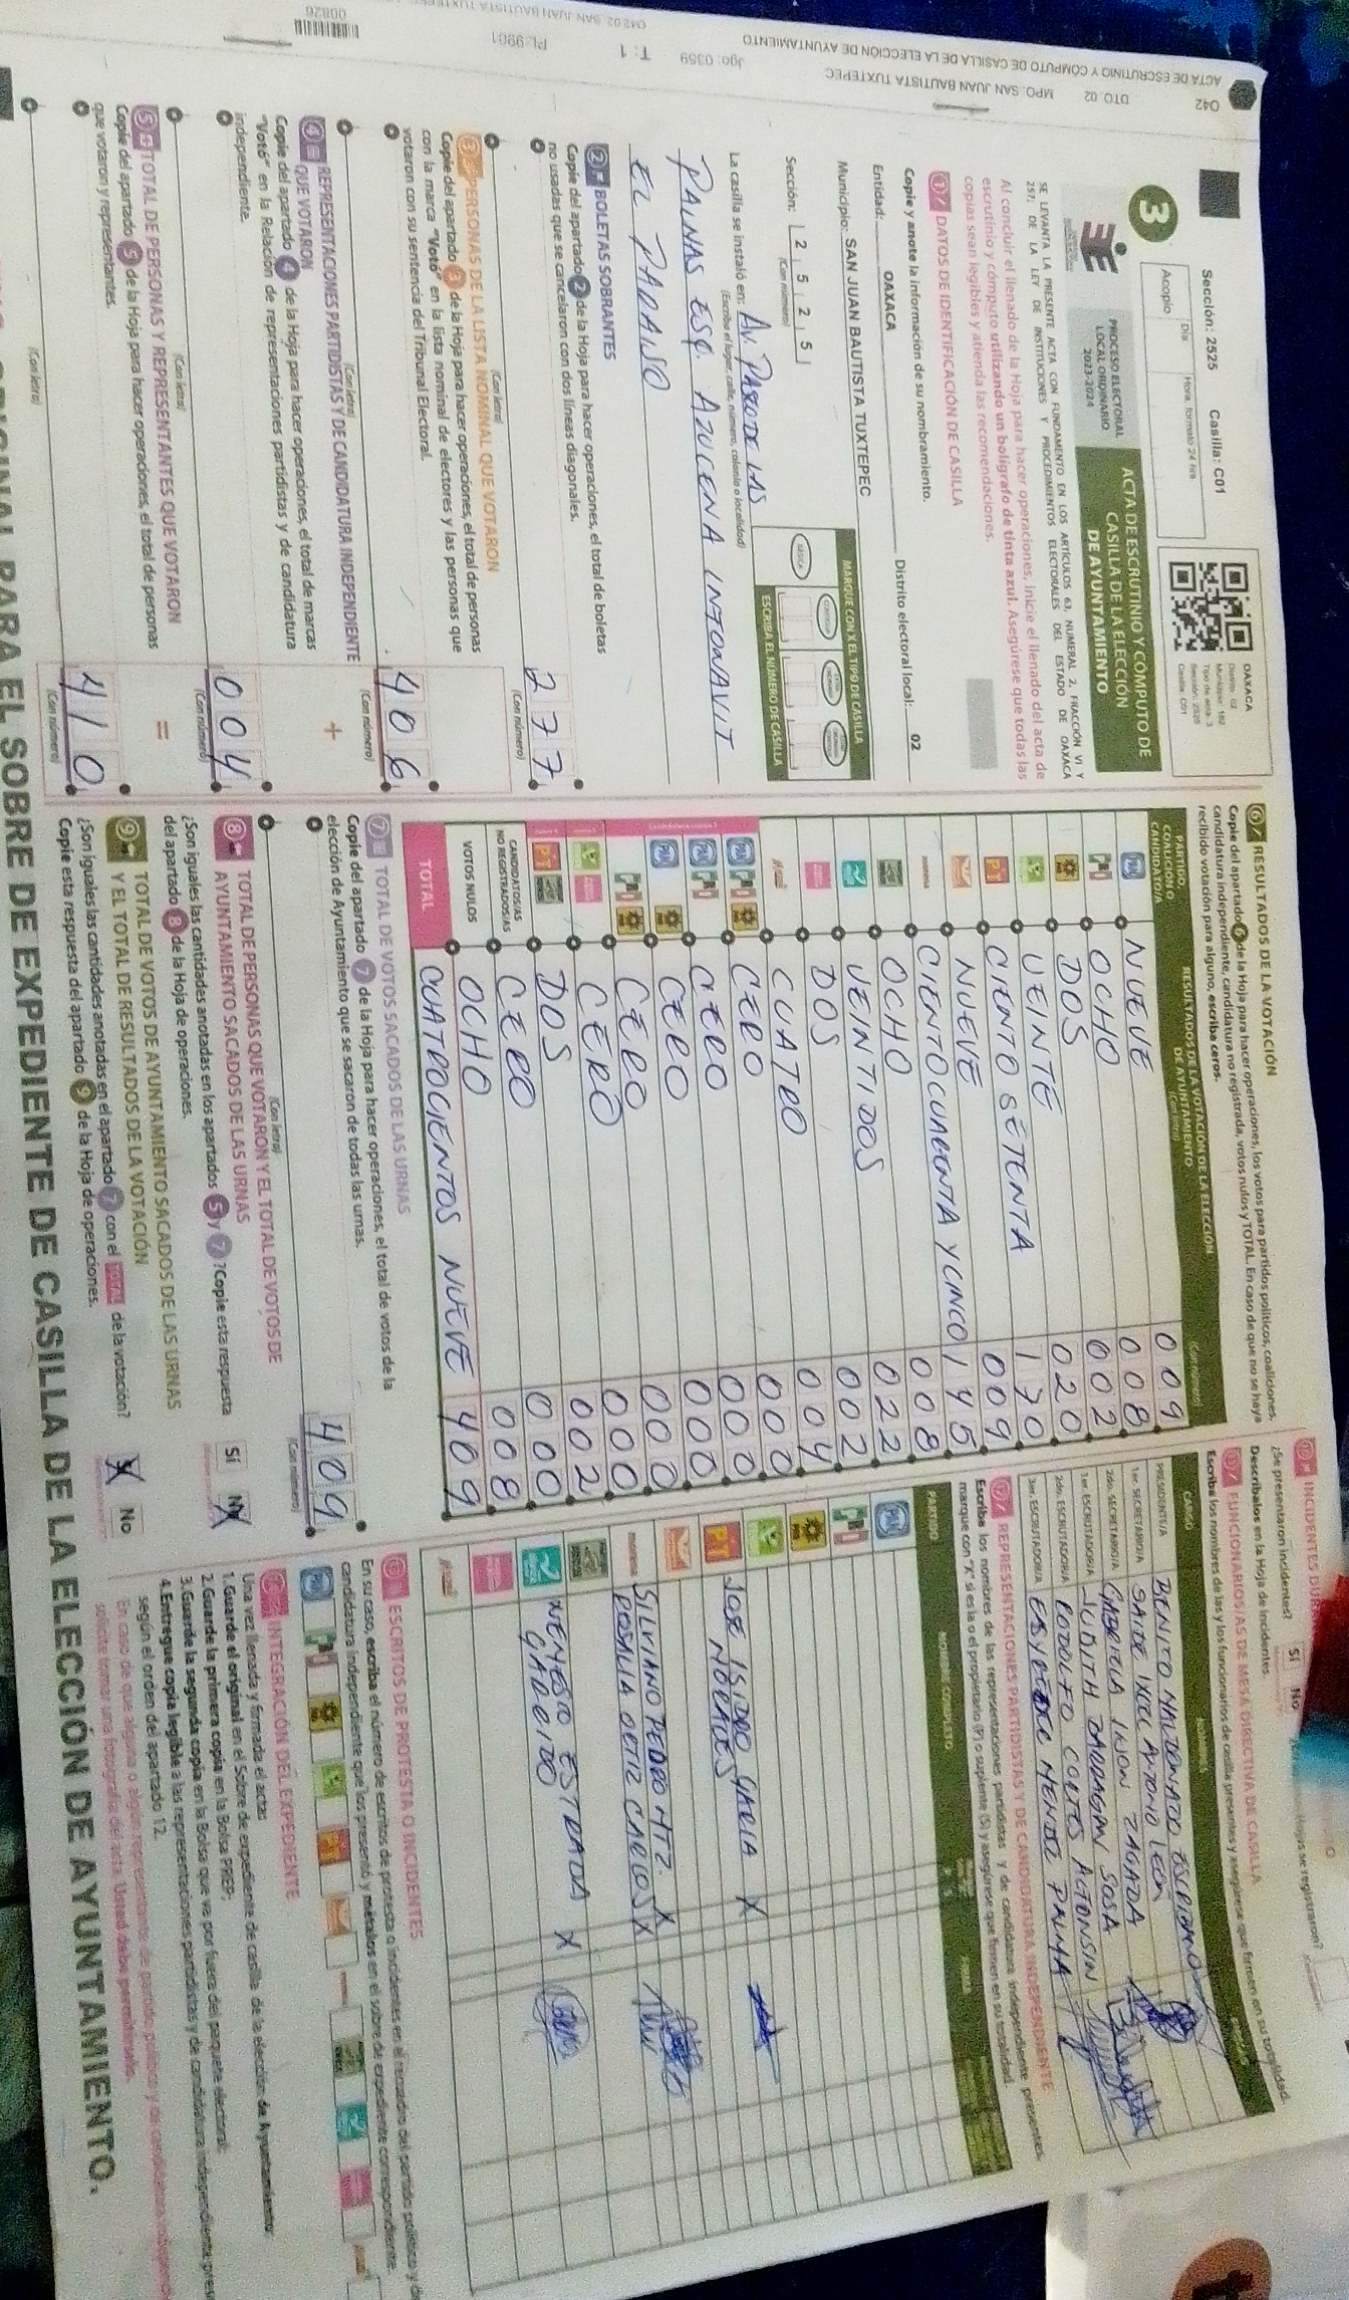 042
DTO. 02
MPO. SAN JUAN BAUTISTA TUXTEPEC
ACTA DE ESCRUTINIO Y CÓMPUTO DE CASILLA DE LA ELECCIÓN DE AYUNTAMIENTO
Jgo: 0359
T: 1
PL: 9901
00826
Sección: 2525 Casilla: C01
Acopio
Día
Hora, formato 24 hrs
OAXACA
3
PROCESO ELECTORAL
LOCAL ORDINARIO
2023-2024
ACTA DE ESCRUTINIO Y CÓMPUTO DE
CASILLA DE LA ELECCIÓN
DE AYUNTAMIENTO
SE LEVANTA LA PRESENTE ACTA CON FUNDAMENTO EN LOS ARTÍCULOS 63, NUMERAL 2, FRACCIÓN VI Y
257, DE LA LEY DE INSTITUCIONES Y PROCEDIMIENTOS ELECTORALES DEL ESTADO DE OAXACA
Al concluir el llenado de la Hoja para hacer operaciones, inicie el llenado del acta de
escrutinio y cómputo utilizando un bolígrafo de tinta azul. Asegúrese que todas las
copias sean legibles y atienda las recomendaciones.
1 DATOS DE IDENTIFICACIÓN DE CASILLA
Copie y anote la información de su nombramiento.
Entidad: OAXACA Distrito electoral local: 02
Municipio: SAN JUAN BAUTISTA TUXTEPEC
MARQUE CON X EL TIPO DE CASILLA
Sección: 2 5 2 5
(Con número)
BÁSICA
ESCRIBA EL NÚMERO DE CASILLA
La casilla se instaló en: AV. PASEO DE LAS
(Escriba el lugar, calle, número, colonia o localidad)
PALMAS ESQ. AZUCENA INFONAVIT
EL PARAISO
2 BOLETAS SOBRANTES
Copie del apartado 2 de la Hoja para hacer operaciones, el total de boletas
no usadas que se cancelaron con dos líneas diagonales.
277
(Con letra)
(Con número)
3 PERSONAS DE LA LISTA NOMINAL QUE VOTARON
Copie del apartado 3 de la Hoja para hacer operaciones, el total de personas
con la marca "Votó" en la lista nominal de electores y las personas que
votaron con su sentencia del Tribunal Electoral.
406
(Con letra)
(Con número)
4 REPRESENTACIONES PARTIDISTAS Y DE CANDIDATURA INDEPENDIENTE
QUE VOTARON
+
Copie del apartado 4 de la Hoja para hacer operaciones, el total de marcas
"Votó" en la Relación de representaciones partidistas y de candidatura
independiente.
004
(Con letra)
(Con número)
5 TOTAL DE PERSONAS Y REPRESENTANTES QUE VOTARON
=
Copie del apartado 5 de la Hoja para hacer operaciones, el total de personas
que votaron y representantes.
410
(Con letra)
(Con número)
6 RESULTADOS DE LA VOTACIÓN
Copie del apartado 6 de la Hoja para hacer operaciones, los votos para partidos políticos, coaliciones,
candidatura independiente, candidatura no registrada, votos nulos y TOTAL. En caso de que no se haya
recibido votación para alguno, escriba ceros.
PARTIDO,
COALICIÓN O
CANDIDATO/A
RESULTADOS DE LA VOTACIÓN DE LA ELECCIÓN
DE AYUNTAMIENTO
(Con letra)
(Con número)
PAN NUEVE 009
PRI OCHO 008
DOS 002
UEINTE 020
PT CIENTO SETENTA 170
NUEVE 009
morena CIENTO CUARENTA Y CINCO 145
OCHO 008
VEINTIDOS 022
DOS 002
CUATRO 004
PAN PRI CERO 000
PAN PRI CERO 000
PAN CERO 000
PRI CERO 000
CERO 000
PT DOS 002
CANDIDATOS/AS
NO REGISTRADOS/AS CERO 000
VOTOS NULOS OCHO 008
TOTAL CUATROCIENTOS NUEVE 409
7 TOTAL DE VOTOS SACADOS DE LAS URNAS
Copie del apartado 7 de la Hoja para hacer operaciones, el total de votos de la
elección de Ayuntamiento que se sacaron de todas las urnas.
409
(Con letra)
(Con número)
8 TOTAL DE PERSONAS QUE VOTARON Y EL TOTAL DE VOTOS DE
AYUNTAMIENTO SACADOS DE LAS URNAS
¿Son iguales las cantidades anotadas en los apartados 5 y 7? Copie esta respuesta
del apartado 8 de la Hoja de operaciones.
Sí No X
9 TOTAL DE VOTOS DE AYUNTAMIENTO SACADOS DE LAS URNAS
Y EL TOTAL DE RESULTADOS DE LA VOTACIÓN
¿Son iguales las cantidades anotadas en el apartado 7 con el TOTAL de la votación?
Copie esta respuesta del apartado 9 de la Hoja de operaciones.
X No
¿Se presentaron incidentes? Sí No
Descríbalos en la Hoja de incidentes.
FUNCIONARIOS/AS DE MESA DIRECTIVA DE CASILLA
Escriba los nombres de las y los funcionarios de casilla presentes y asegúrese que firmen en su totalidad.
CARGO
NOMBRES
PRESIDENTE/A BENITO MALDONADO ESCRIBANO
1er. SECRETARIO/A SAIDE IXCEL ANTONIO LEON
2do. SECRETARIO/A GABRIELA IRJON ZAGADA
1er. ESCRUTADOR/A JUDITH BARRAGAN SOSA
2do. ESCRUTADOR/A RODOLFO CORTES ALTONSIN
3er. ESCRUTADOR/A MENDEZ PALMA
REPRESENTACIONES PARTIDISTAS Y DE CANDIDATURA INDEPENDIENTE
Escriba los nombres de las representaciones partidistas y de candidatura independiente presentes,
marque con "X" si es la o el propietario (P) o suplente (S) y asegúrese que firmen en su totalidad.
PARTIDO
NOMBRE COMPLETO
FIRMA
PAN
PRI
PT JOSE ISIDRO GARIA X
MORALES
morena SILVIANO PEDRO MTZ. X
ROSALIA ORTIZ CARLOS X
NEMESIO ESTRADA X
GARRIDO
ESCRITOS DE PROTESTA O INCIDENTES
En su caso, escriba el número de escritos de protesta o incidentes en el recuadro del partido político y de
candidatura independiente que los presentó y métalos en el sobre de expediente correspondiente.
INTEGRACIÓN DEL EXPEDIENTE
Una vez llenada y firmada el acta:
1. Guarde el original en el Sobre de expediente de casilla de la elección de Ayuntamiento.
2. Guarde la primera copia en la Bolsa PREP;
3. Guarde la segunda copia en la Bolsa que va por fuera del paquete electoral;
4. Entregue copia legible a las representaciones partidistas y de candidatura independiente
según el orden del apartado 12.
En caso de que alguna o algún representante de partido político y de candidatura
solicite tomar una fotografía del acta, Usted debe permitírselo.
ORIGINAL PARA EL SOBRE DE EXPEDIENTE DE CASILLA DE LA ELECCIÓN DE AYUNTAMIENTO.